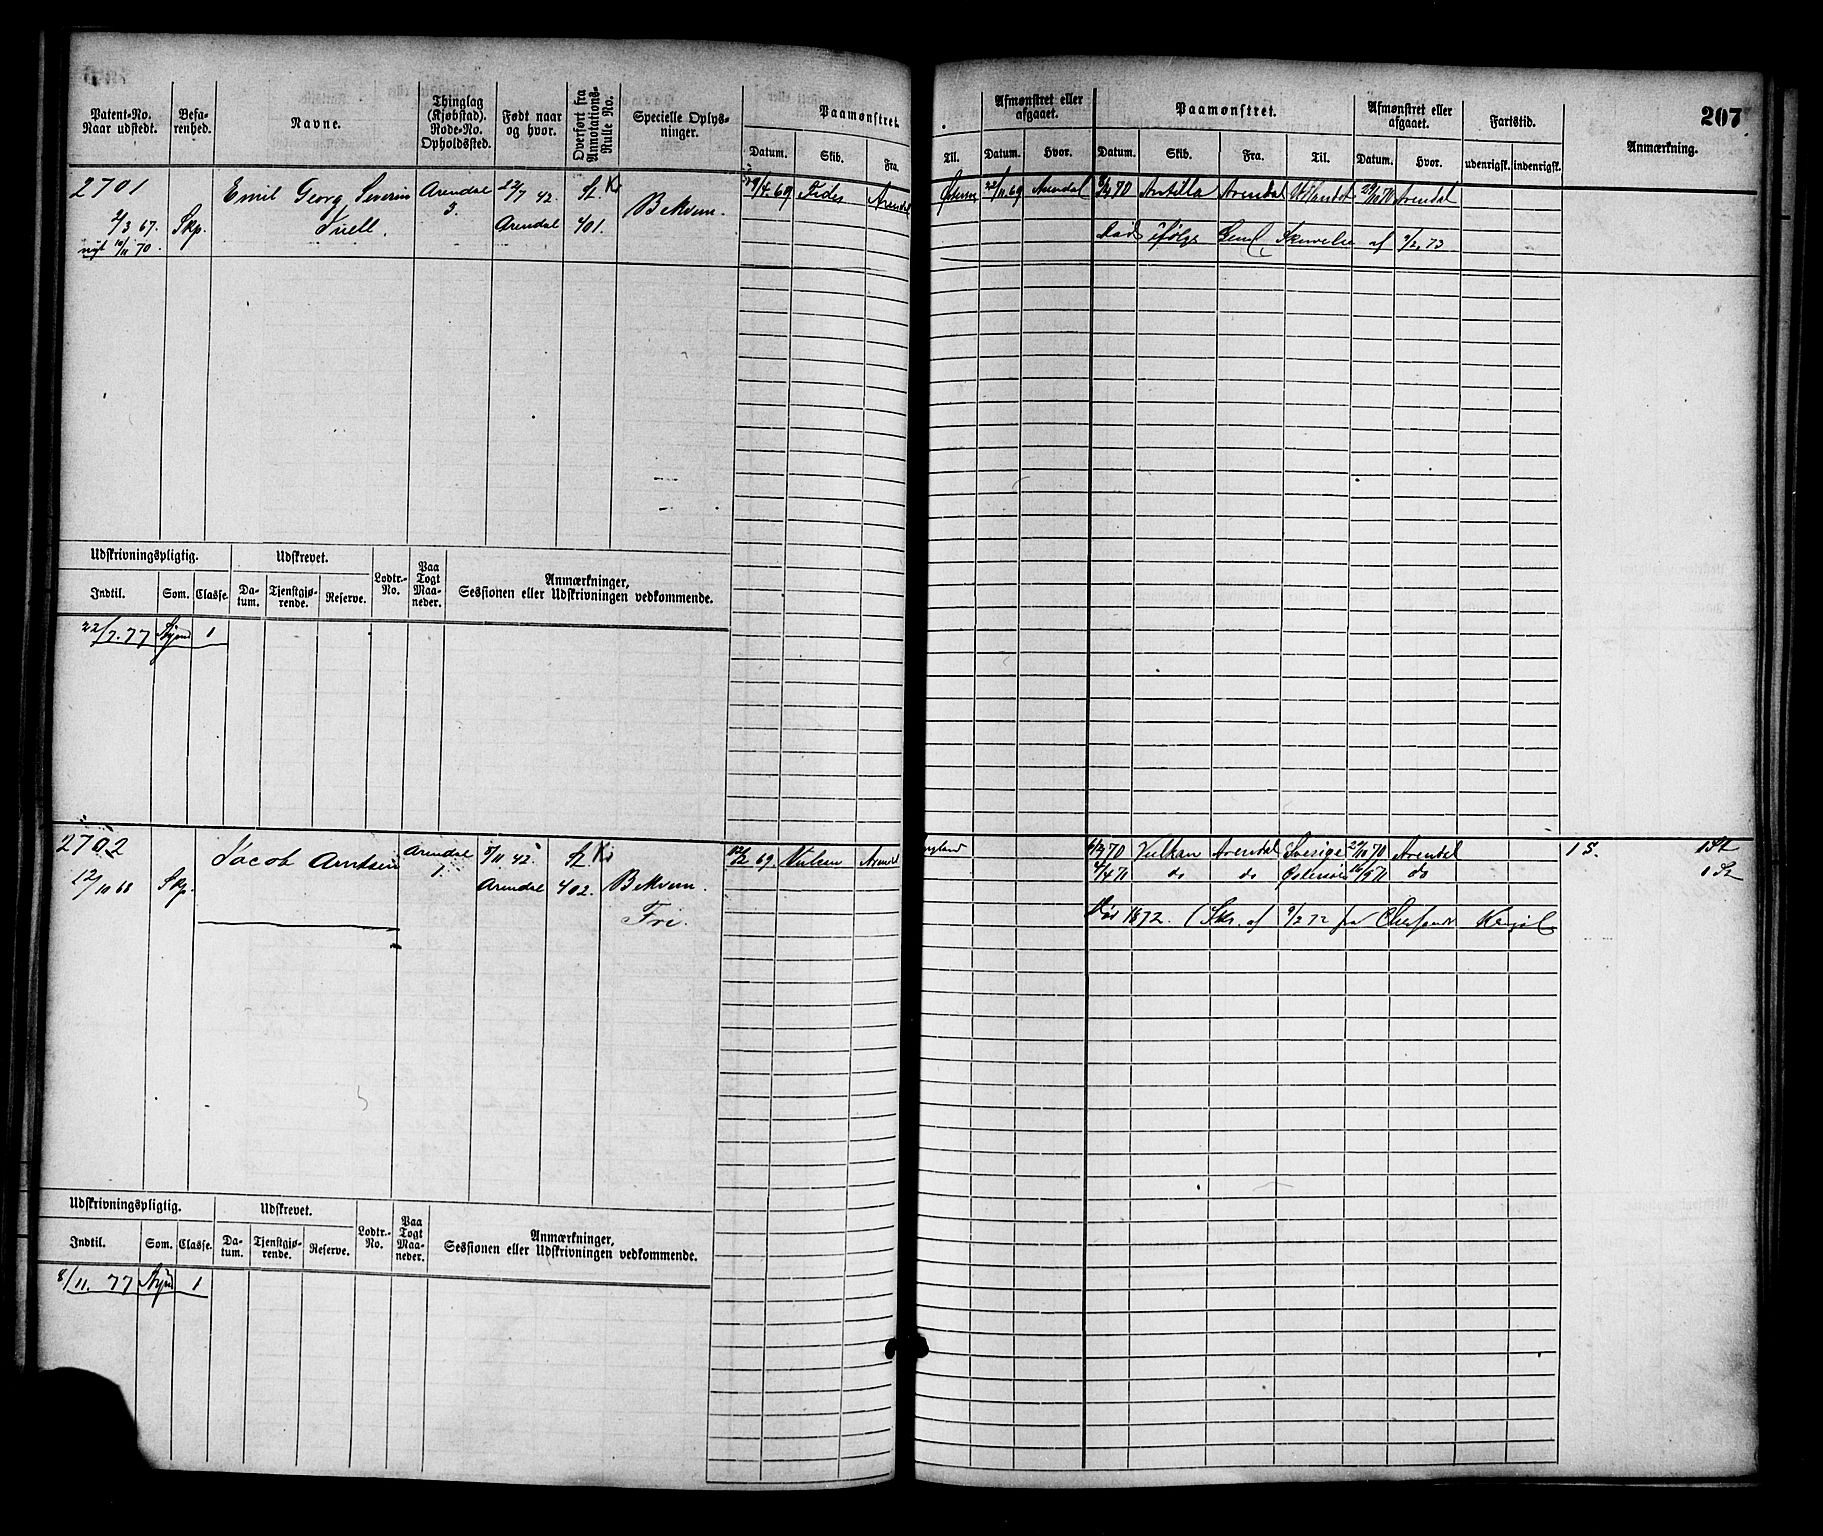 207
Patent-No. Naar udstedt.
Befarenhed.
Navne.
Thinglag (Kjøbstad). Rode-No. Opholdssted.
Født naar og hvor.
Overført fra Annotations-Rulle No.
Specielle Oplysninger.
Paamønstret.
Datum. Skib. Fra. Til.
Afmønstret eller afgaaet.
Datum. Hvor.
Paamønstret.
Datum. Skib. Fra. Til.
Afmønstret eller afgaaet.
Datum. Hvor.
Fartstid.
udenrigsk. indenrigsk.
Anmærkning.
2701 Emil Georg Severin Arendal 22/7 42. Bekvem. 9/4 69 Fides Arendal 22/11 69 Arendal 70 Antilla Arendal 70 Arendal
2/3 67. Skp. 5. Arendal 401.
nyt 10/11 70. død ifølge Skrivelse af 9/2 73
Udskrivningspligtig. Udskrevet. Lodtr.-No. Paa Togt Maaneder. Anmærkninger, Sessionen eller Udskrivningen vedkommende.
Indtil. Som. Classe. Datum. Tjenstgjørende. Reserve.
22/7. 77 1
2702 Jacob Arntsen Arendal 1. 8/11 42. 69. Vulcan Arendal England 70 Vulkan Arendal Sverige 29/10 70 Arendal 15.
12/10 68 Skp. Arendal 402. Bekvem. 4/4 71 do do 71 do
Fri. 1872. (Skr. af 9/2 72 fra
Udskrivningspligtig. Udskrevet. Lodtr.-No. Paa Togt Maaneder. Anmærkninger, Sessionen eller Udskrivningen vedkommende.
Indtil. Som. Classe. Datum. Tjenstgjørende. Reserve.
8/11. 77 1